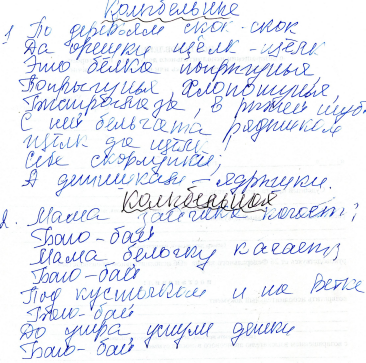 Колыбельные
1. По деревьям скок-скок
Да орешки щёлк-щёлк
Это белка попрыгунья
Попрыгунья хлопотунья,
в рыжей шуб.
С ней бельчата рядышком
Щёлк да щёлк
Себе скорлупки,
А детишкам – ядрышки.
Колыбельная
2. Мама зайчика качает;
Баю-бай
Мама белочку качает
Баю-бай
Под кустиком и на ветке
Баю-бай
До утра уснули детки
Баю-бай